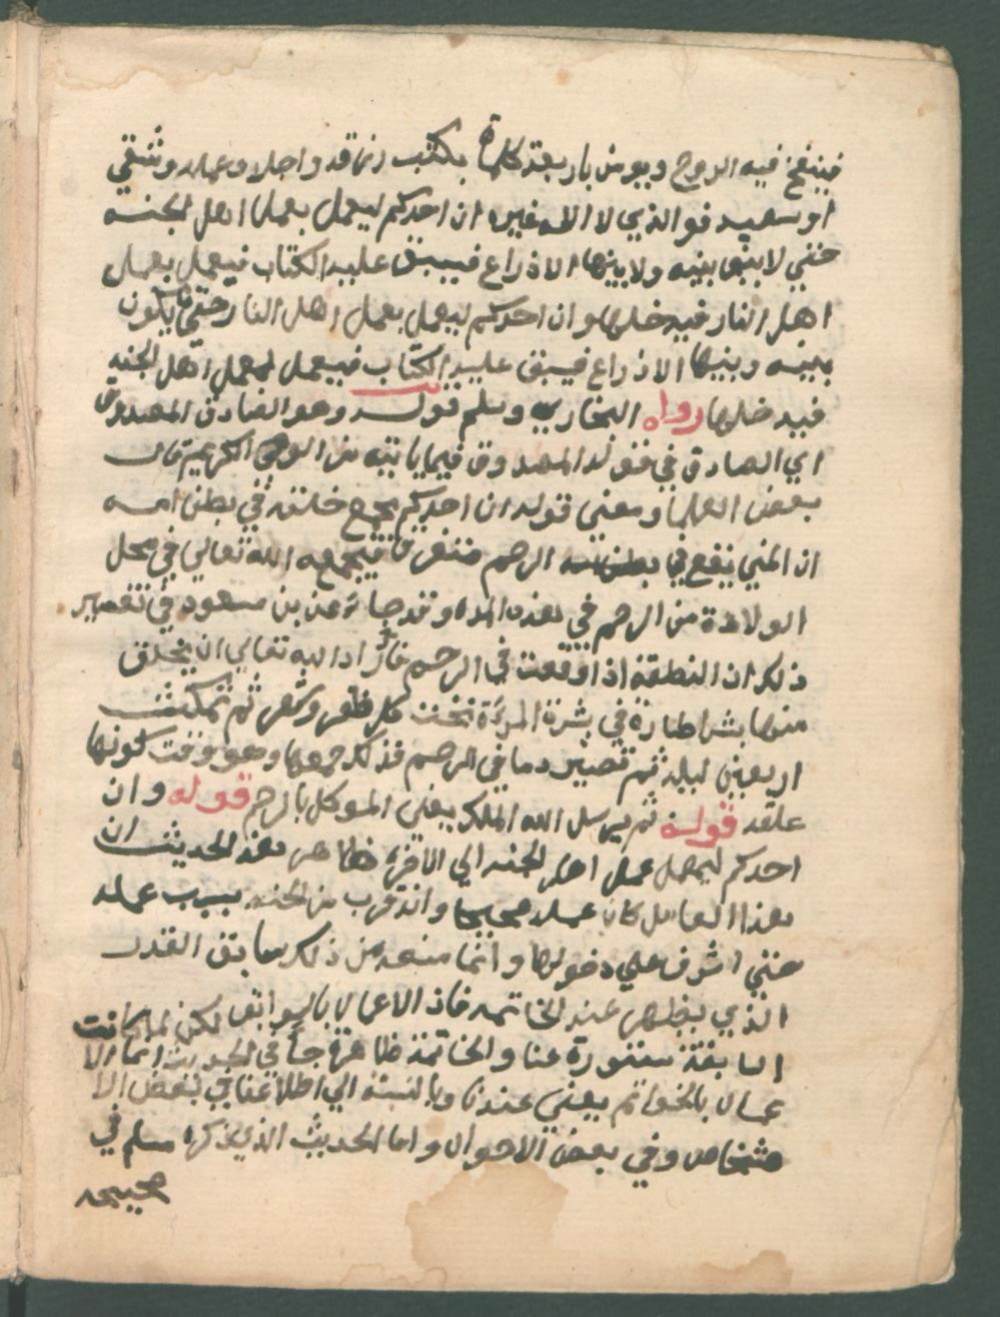 فينفخ فيه الروح ويومر باربعة كلمات بكتب رزقه واجله وعمله وشقي
او سعيد فو الذي لا اله غيره ان احدكم ليعمل بعمل اهل الجنه
حتي لا يبقي بينه وبينها الا ذراع فيسبق عليه الكتاب فيعمل بعمل
اهل النار فيدخلها وان احدكم ليعمل بعمل اهل النار حتي ما يكون
بينه وبينها الا ذراع فيسبق عليه الكتاب فيعمل بعمل اهل الجنه
فيدخلها رواه البخاري ومسلم قوله وهو الصادق المصدوق
اي الصادق في قوله المصدوق فيما ياتيه من الوحي الكريم قال
بعض العلما ومعني قوله ان احدكم يجمع خلقه في بطن امه
ان المني يقع في الرحم متفرقا فيجمعه الله تعالي في محل
الولادة من الرحم في هذه المده وقد جاء عن بن مسعود في تفسير
ذلك ان النطفة اذا وقعت في الرحم فاراد الله تعالي ان يخلق
منها بشرا طارة في بشرة المرءة تحت كل ظفر وشعر ثم تمكث
اربعين ليلة ثم تصير دما في الرحم فذلك جمعها وهو وقت كونها
علقه قوله ثم يرسل الله الملك يعني الموكل بالرحم قوله وان
احدكم ليعمل عمل اهل الجنه الي الاخره ظاهر هذ الحديث ان
هذا العامل كان عمله صحيحا وانه قرب من الجنه بسبب عمله
حتي اشرف علي دخولها وانما منعه من ذلك سابق القدر
الذي يظهر عند الخاتمه فاذ الاعمال بالسوابق لكن لما كانت
السابقة مستورة عنا والخاتمة ظاهرة جاء في الحديث انما الا
عمال بالخواتم يعني عندنا وبالنسبة الي اطلاعنا في بعض الا
شخاص وفي بعض الاحوال واما الحديث الذي ذكره مسلم في
صحيحه